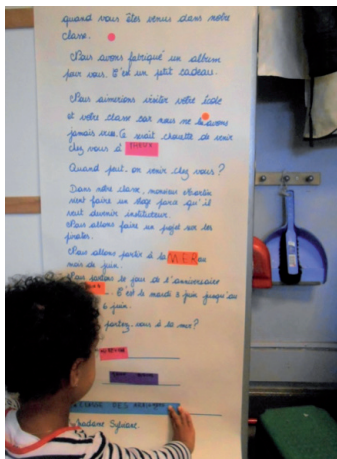 quand vous êtes venus dans notre
classe.
Nous avons fabriqué un album
pour vous. C'est un petit cadeau.
Nous aimerions visiter votre école
et votre classe car nous ne avons
jamais vue. Ce serait chouette de venir
chez vous à
Quand peut-on venir chez vous ?
Dans notre classe, monsieur Martin
vient faire un stage parce qu'il
veut devenir instituteur.
Nous allons faire un projet sur les
pirates.
Nous allons partir à la MER au
mois de juin.
Nous partons le jour de l'anniversaire
. C'est le mardi 3 juin jusqu'au
6 juin.
partez-vous à la mer ?
CLASSE DES
Madame